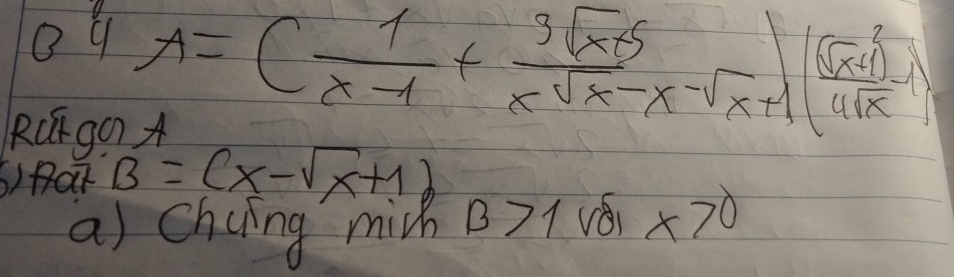 B4 A = ( 1/(x-1) + (3√x+5)/(x√x-x-√x+1) ) ( (√x+1)²/(4√x) - 1 )
Rút gọn A
b) Đặt B = (x-√x+1)
a) Chứng mih B>1 với x>0